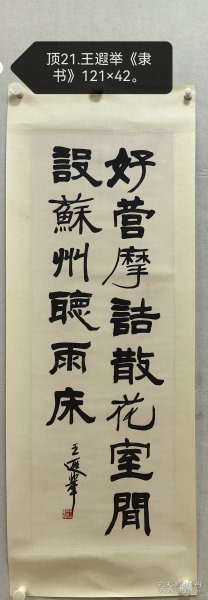 顶21.王遐举《隶
书》121×42。
好营摩诘散花室間
設蘇州聽雨床
王遐举